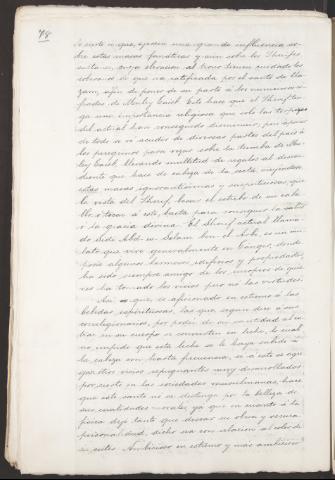 78
Lo cierto es que, ejercen una grande influencia so-
bre estas masas fanáticas y aun sobre los Sherifes
, cuya elevacion al trono tienen cuidado los
soberanos de que sea ratificada por el santo de Ua-
zam, afin de poner de su parte á los numerosos a-
filiados de Muley Taieb. Esto hace que el Sherif ten-
ga una importancia religiosa que solo las torpezas
del actual han conseguido disminuir, pero á pesar
de todo se ve acudir de diversas partes del pais á
los peregrinos para orar sobre la tumba de Mu-
ley Taieb, llevando multitud de regalos al descen-
diente que hace de cabeza de la secta, creyendo
estas masas ignorantísimas y supersticiosas que
la vista del Sherif, besar el estribo de su caba-
llo ó tocar á este, basta para conseguir la salud
ó la gracia divina. El Sherif actual llama-
do Sidi Abd-es-Selam ben el Arbi, es un mu-
lato que vive generalmente en Tanger, donde
posee algunos hermosos edificios y propiedades,
ha sido siempre amigo de los europeos de quie-
nes ha tomado los vicios pero no las virtudes.
Asi es que, es aficionado en estremo á las
bebidas espirituosas, las que, segun dice á sus
correligionarios, por poder de su santidad al en-
trar en su cuerpo se convierten en leche, lo cual
no impide que esta leche se le haya subido á
la cabeza con harta frecuencia, une á este as
que otros vicios repugnantes muy desarrollados
por cierto en las sociedades musulmanas, hace
que este santo no se distinga por la belleza de
sus cualidades morales, ya que en cuanto á la
física deja tanto que desear su obesa y oscura
personalidad, dicho sea con relacion al color de
su cutis. Ambicioso en estremo y mas ambicioso